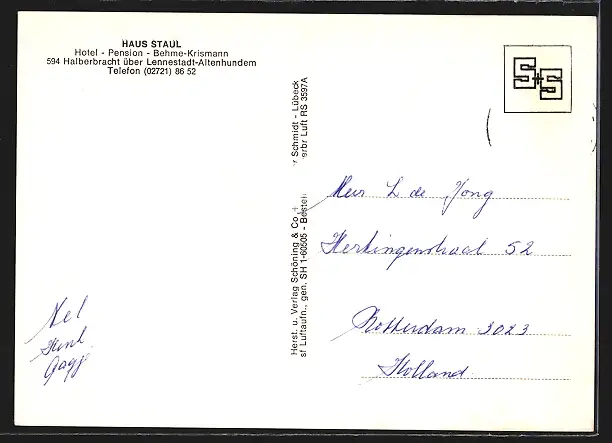 HAUS STAUL
Hotel - Pension - Behme-Krismann
594 Halberbracht über Lennestadt-Altenhundem
Telefon (02721) 86 52
Herst. u. Verlag Schöning & Co
sf Luftaufn., gen. SH 1-60505 - Bestell
r Schmidt - Lübeck
erbr Luft RS 3597A
S+S
L de Jong
52
Rotterdam 3023
Holland
Nel